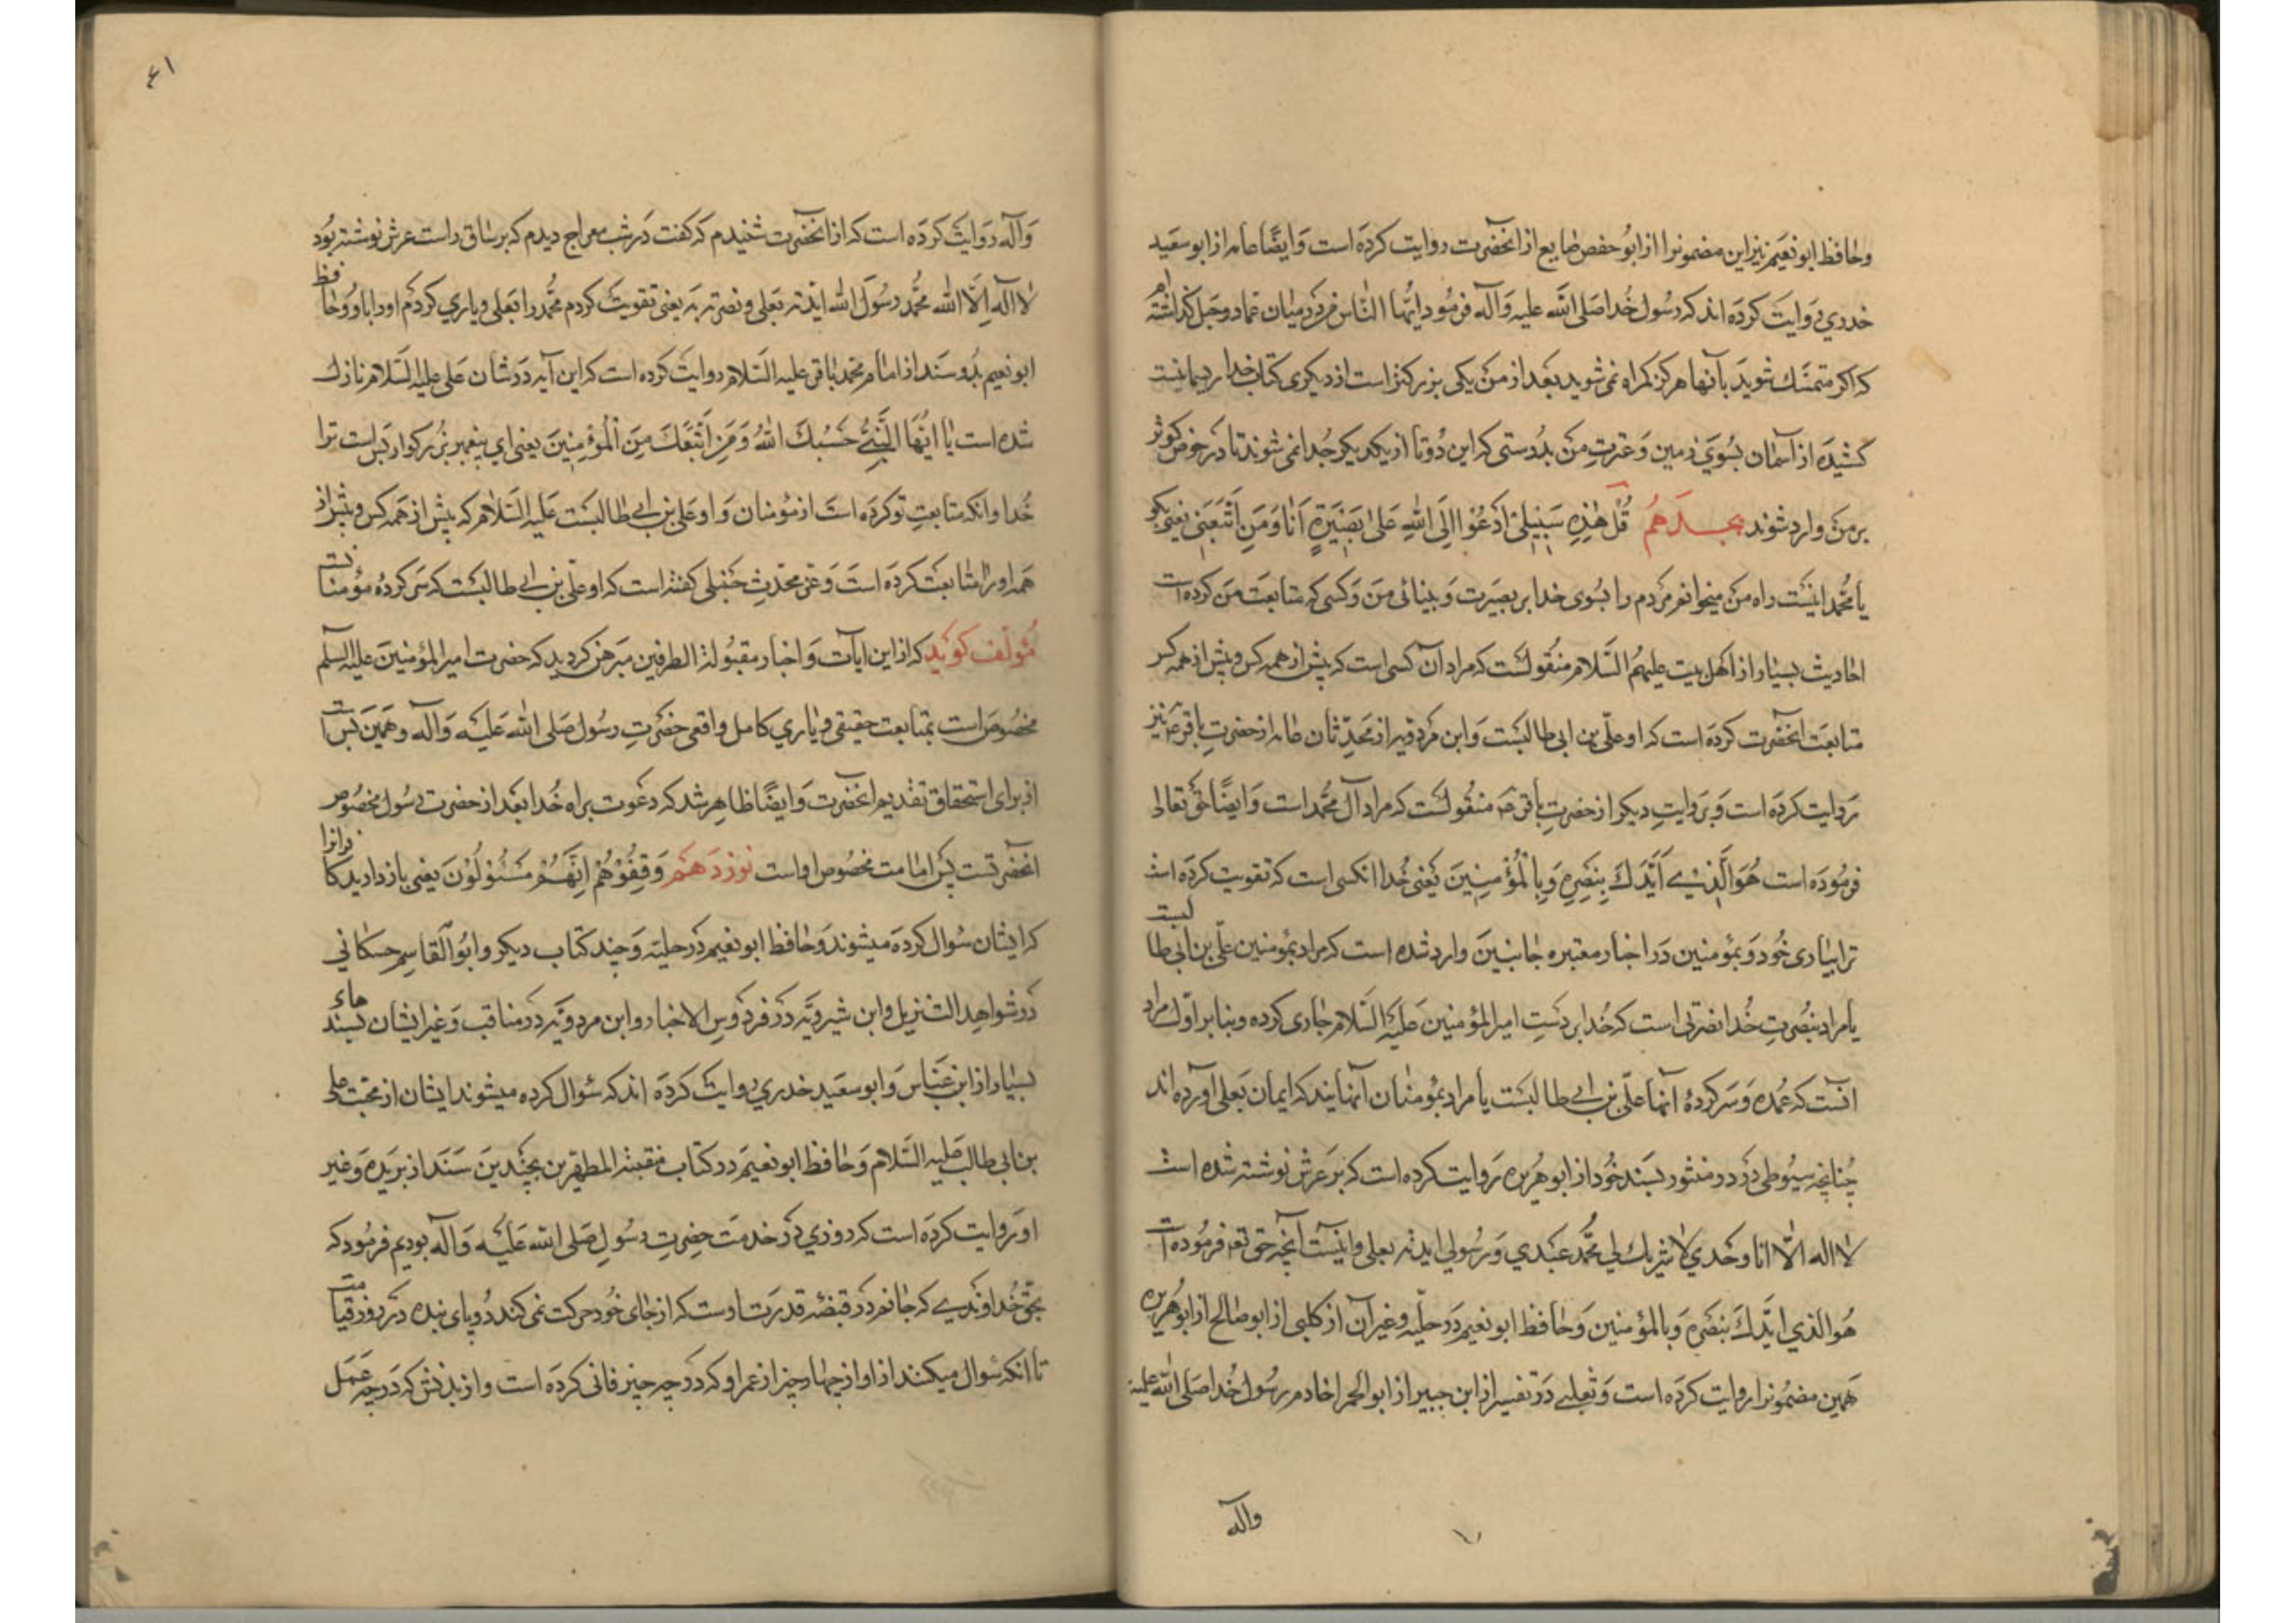 وحافظ ابو نعیم نیز این مضمونرا از ابو حفص صایع از انحضرت روایت کرده است وایضًا عامه از ابو سعید
خدری روایت کرده اند که رسول خدا صلی الله علیه وآله فرمود ایها الناس من در میان شما دو حبل گذاشته ام
که اگر متمسک شوید بآنها هرگز گمراه نمی شوید بعد از من یکی بزرگتر است از دیگری کتاب خدا ریسمانیست
کشیده از آسمان بسوی زمین وعترت من بدرستی که این دوتا از یکدیگر جدا نمی شوند تا در حوض کوثر
بر من وارد شوند هجدهم قُلْ هٰذِهِ سَبیلی اَدْعُوا اِلَی اللهِ عَلٰی بَصیرَةٍ اَنَا وَمَنِ اتَّبَعَنی یعنی بگو
یا محمد اینست راه من میخوانم مردم را بسوی خدا بر بصیرت وبینائی من وکسی که متابعت من کرده است
احادیث بسیار از اهل بیت علیهم السلام منقولست که مراد آن کسی است که پیش از همه کس وبیش از همه کس
متابعت انحضرت کرده است که او علی بن ابی طالبست وابن مردویه از محدثان عامه از حضرت باقر ع نیز
روایت کرده است وبروایت دیگر از حضرت باقر ع منقولست که مراد آل محمد است وایضًا حق تعالی
فرموده است هُوَ الَّذی اَیَّدَكَ بِنَصْرِهِ وَبِالْمُؤْمِنینَ یعنی خدا آنکسی است که تقویت کرده است
ترا بیاری خود وبمؤمنین در اخبار معتبره جانبین وارد شده است که مراد بمؤمنین علی بن ابی طالبست
یا مراد بنصرت خدا نصرتی است که خدا بر دست امیر المؤمنین علیه السلام جاری کرده وبنا بر اول مراد
آنست که عمده وسرکردهٔ آنها علی بن ابی طالبست یا مراد بمؤمنان آنهایند که ایمان بعلی آورده اند
چنانچه سیوطی در در منثور بسند خود از ابو هریره روایت کرده است که بر عرش نوشته شده است
لا اله الّا انا وحدی لا شریك لی محمد عبدی ورسولی ایدته بعلی واینست آنچه حق تع فرموده است
هو الذی ایدك بنصره وبالمؤمنین وحافظ ابو نعیم در حلیه وغیر آن از کلبی از ابو صالح از ابو هریره
همین مضمونرا روایت کرده است وثعلبی در تفسیر از ابن جبیر از ابو الحمرا خادم رسول خدا صلی الله علیه
وآله
٤١
وآله روایت کرده است که از انحضرت شنیدم که گفت در شب معراج دیدم که بر ساق راست عرش نوشته بود
لا اله الّا الله محمد رسول الله ایدته بعلی ونصرته به یعنی تقویت کردم محمد را بعلی ویاری کردم او را باو وحافظ
ابو نعیم بدو سند از امام محمد باقر علیه السلام روایت کرده است که این آیه در شان علی علیه السلام نازل
شده است یا اَیُّهَا النَّبِیُّ حَسْبُكَ اللهُ وَمَنِ اتَّبَعَكَ مِنَ الْمُؤْمِنینَ یعنی ای پیغمبر بزرگوار بس است ترا
خدا وآنکه متابعت تو کرده است از مؤمنان واو علی بن ابی طالبست علیه السلام که پیش از همه کس وبیش از
همه او را متابعت کرده است وعز محدث حنبلی گفته است که او علی بن ابی طالبست که سرکرده مؤمنانست
مؤلف گوید که از این ایات واخبار مقبولة الطرفین مبرهن گردید که حضرت امیر المؤمنین علیه السلم
مخصوص است بمتابعت حقیقی ویاری کامل واقعی حضرت رسول صلی الله علیه وآله وهمین بس است
از برای استحقاق تقدیم انحضرت وایضًا ظاهر شد که دعوت براه خدا بعد از حضرت رسول مخصوص
انحضرتست پس امامت مخصوص اواست نوزدهم وَقِفُوهُمْ اِنَّهُمْ مَسْئُولُونَ یعنی بازدارید کافرانرا
که ایشان سؤال کرده میشوند وحافظ ابو نعیم در حلیه وچند کتاب دیگر وابو القاسم حسکانی
در شواهد التنزیل وابن شیرویه در فردوس الاخبار وابن مردویه در مناقب وغیر ایشان بسندهاء
بسیار از ابن عباس وابو سعید خدری روایت کرده اند که سؤال کرده میشوند ایشان از محبت علی
بن ابی طالب علیه السلام وحافظ ابو نعیم در کتاب منقبة المطهرین بچندین سند از بریده وغیر
او روایت کرده است که روزی در خدمت حضرت رسول صلی الله علیه وآله بودیم فرمود که
بحق خداوندی که جانم در قبضه قدرت اوست که از جای خود حرکت نمی کند دو پای بنده در روز قیامت
تا انکه سؤال میکنند از او از چهار چیز از عمر او که در چه چیز فانی کرده است واز بدنش که در چه عمل